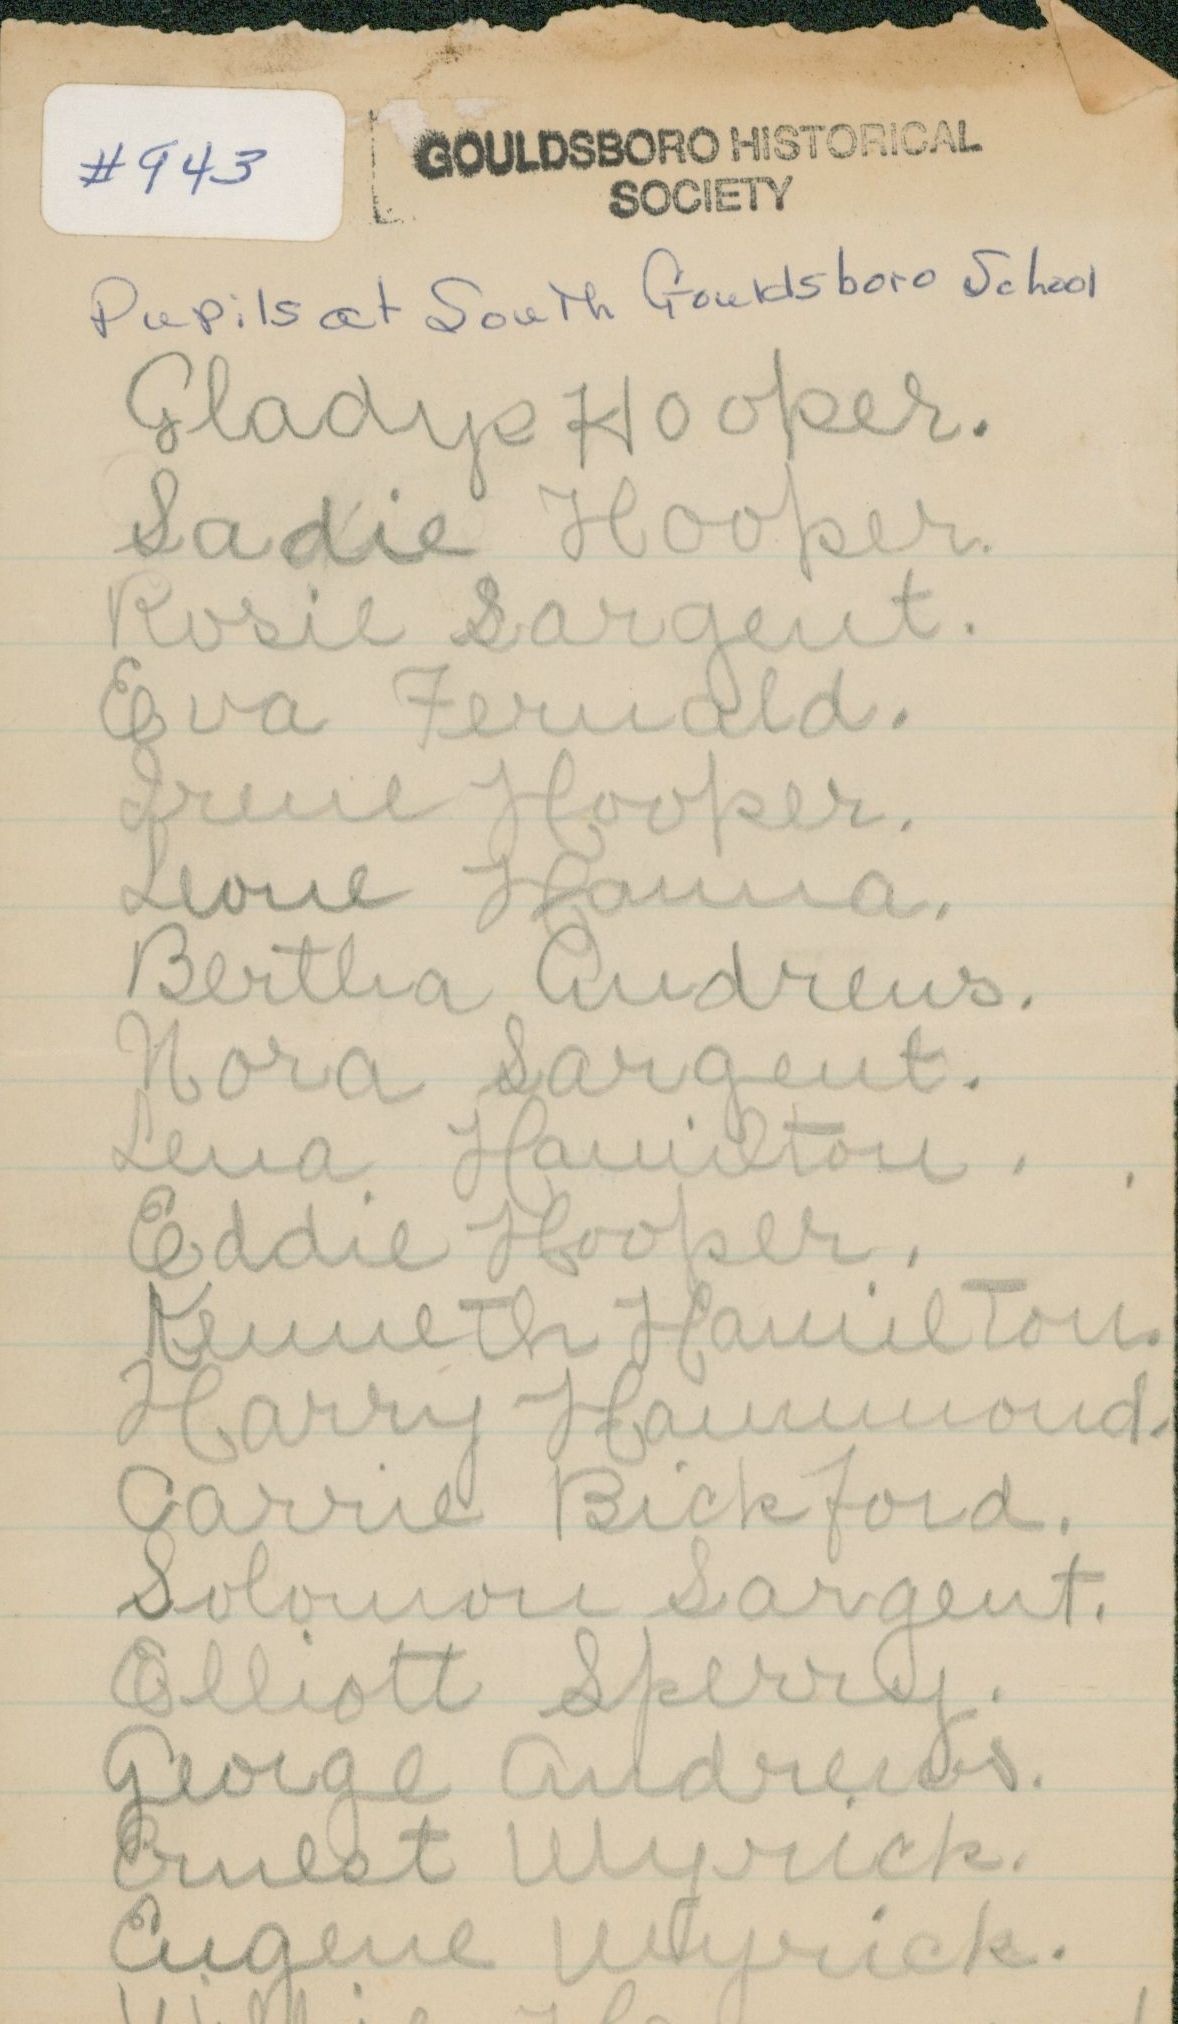 #943
GOULDSBORO HISTORICAL
SOCIETY
Pupils at South Gouldsboro School
Gladys Hooper.
Sadie Hooper.
Rosie Sargent.
Eva Fernald.
Irene Hooper.
Leone Hanna.
Bertha Andrews.
Nora Sargent.
Lena Hamilton.
Eddie Hooper.
Kenneth Hamilton.
Harry Hammond.
Carrie Bickford.
Solomon Sargent.
Elliott Sperry.
George Andrews.
Ernest Wyrick.
Eugene Wyrick.
Willie